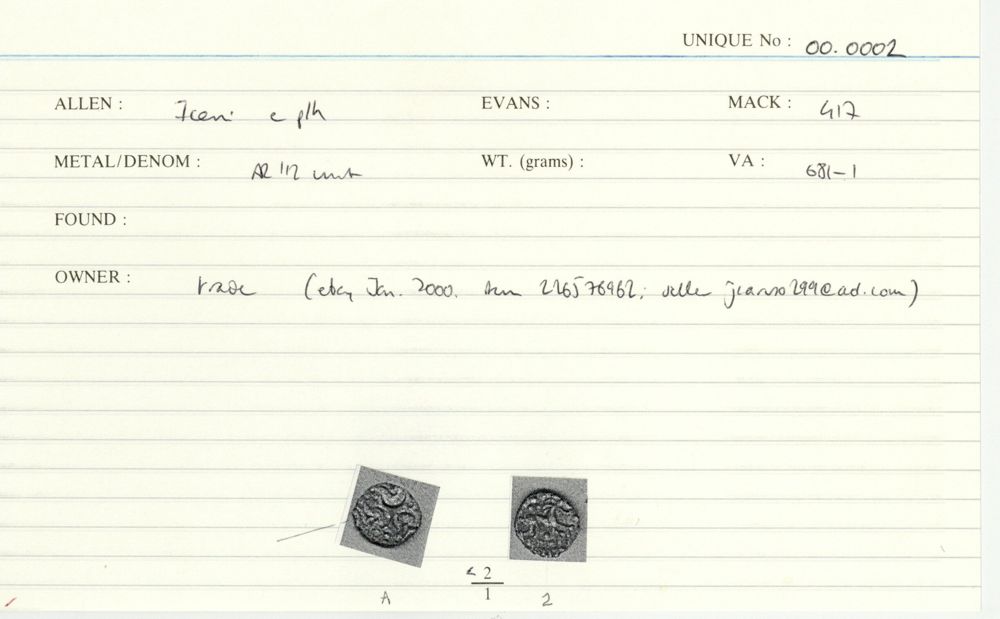 UNIQUE No : 00.0002
ALLEN : Iceni c plh EVANS : MACK : 417
METAL/DENOM : AR 1/2 unit WT. (grams) : VA : 681-1
FOUND :
OWNER : trade (ebay Jan. 2000. item 226576962;
2
1
A 2